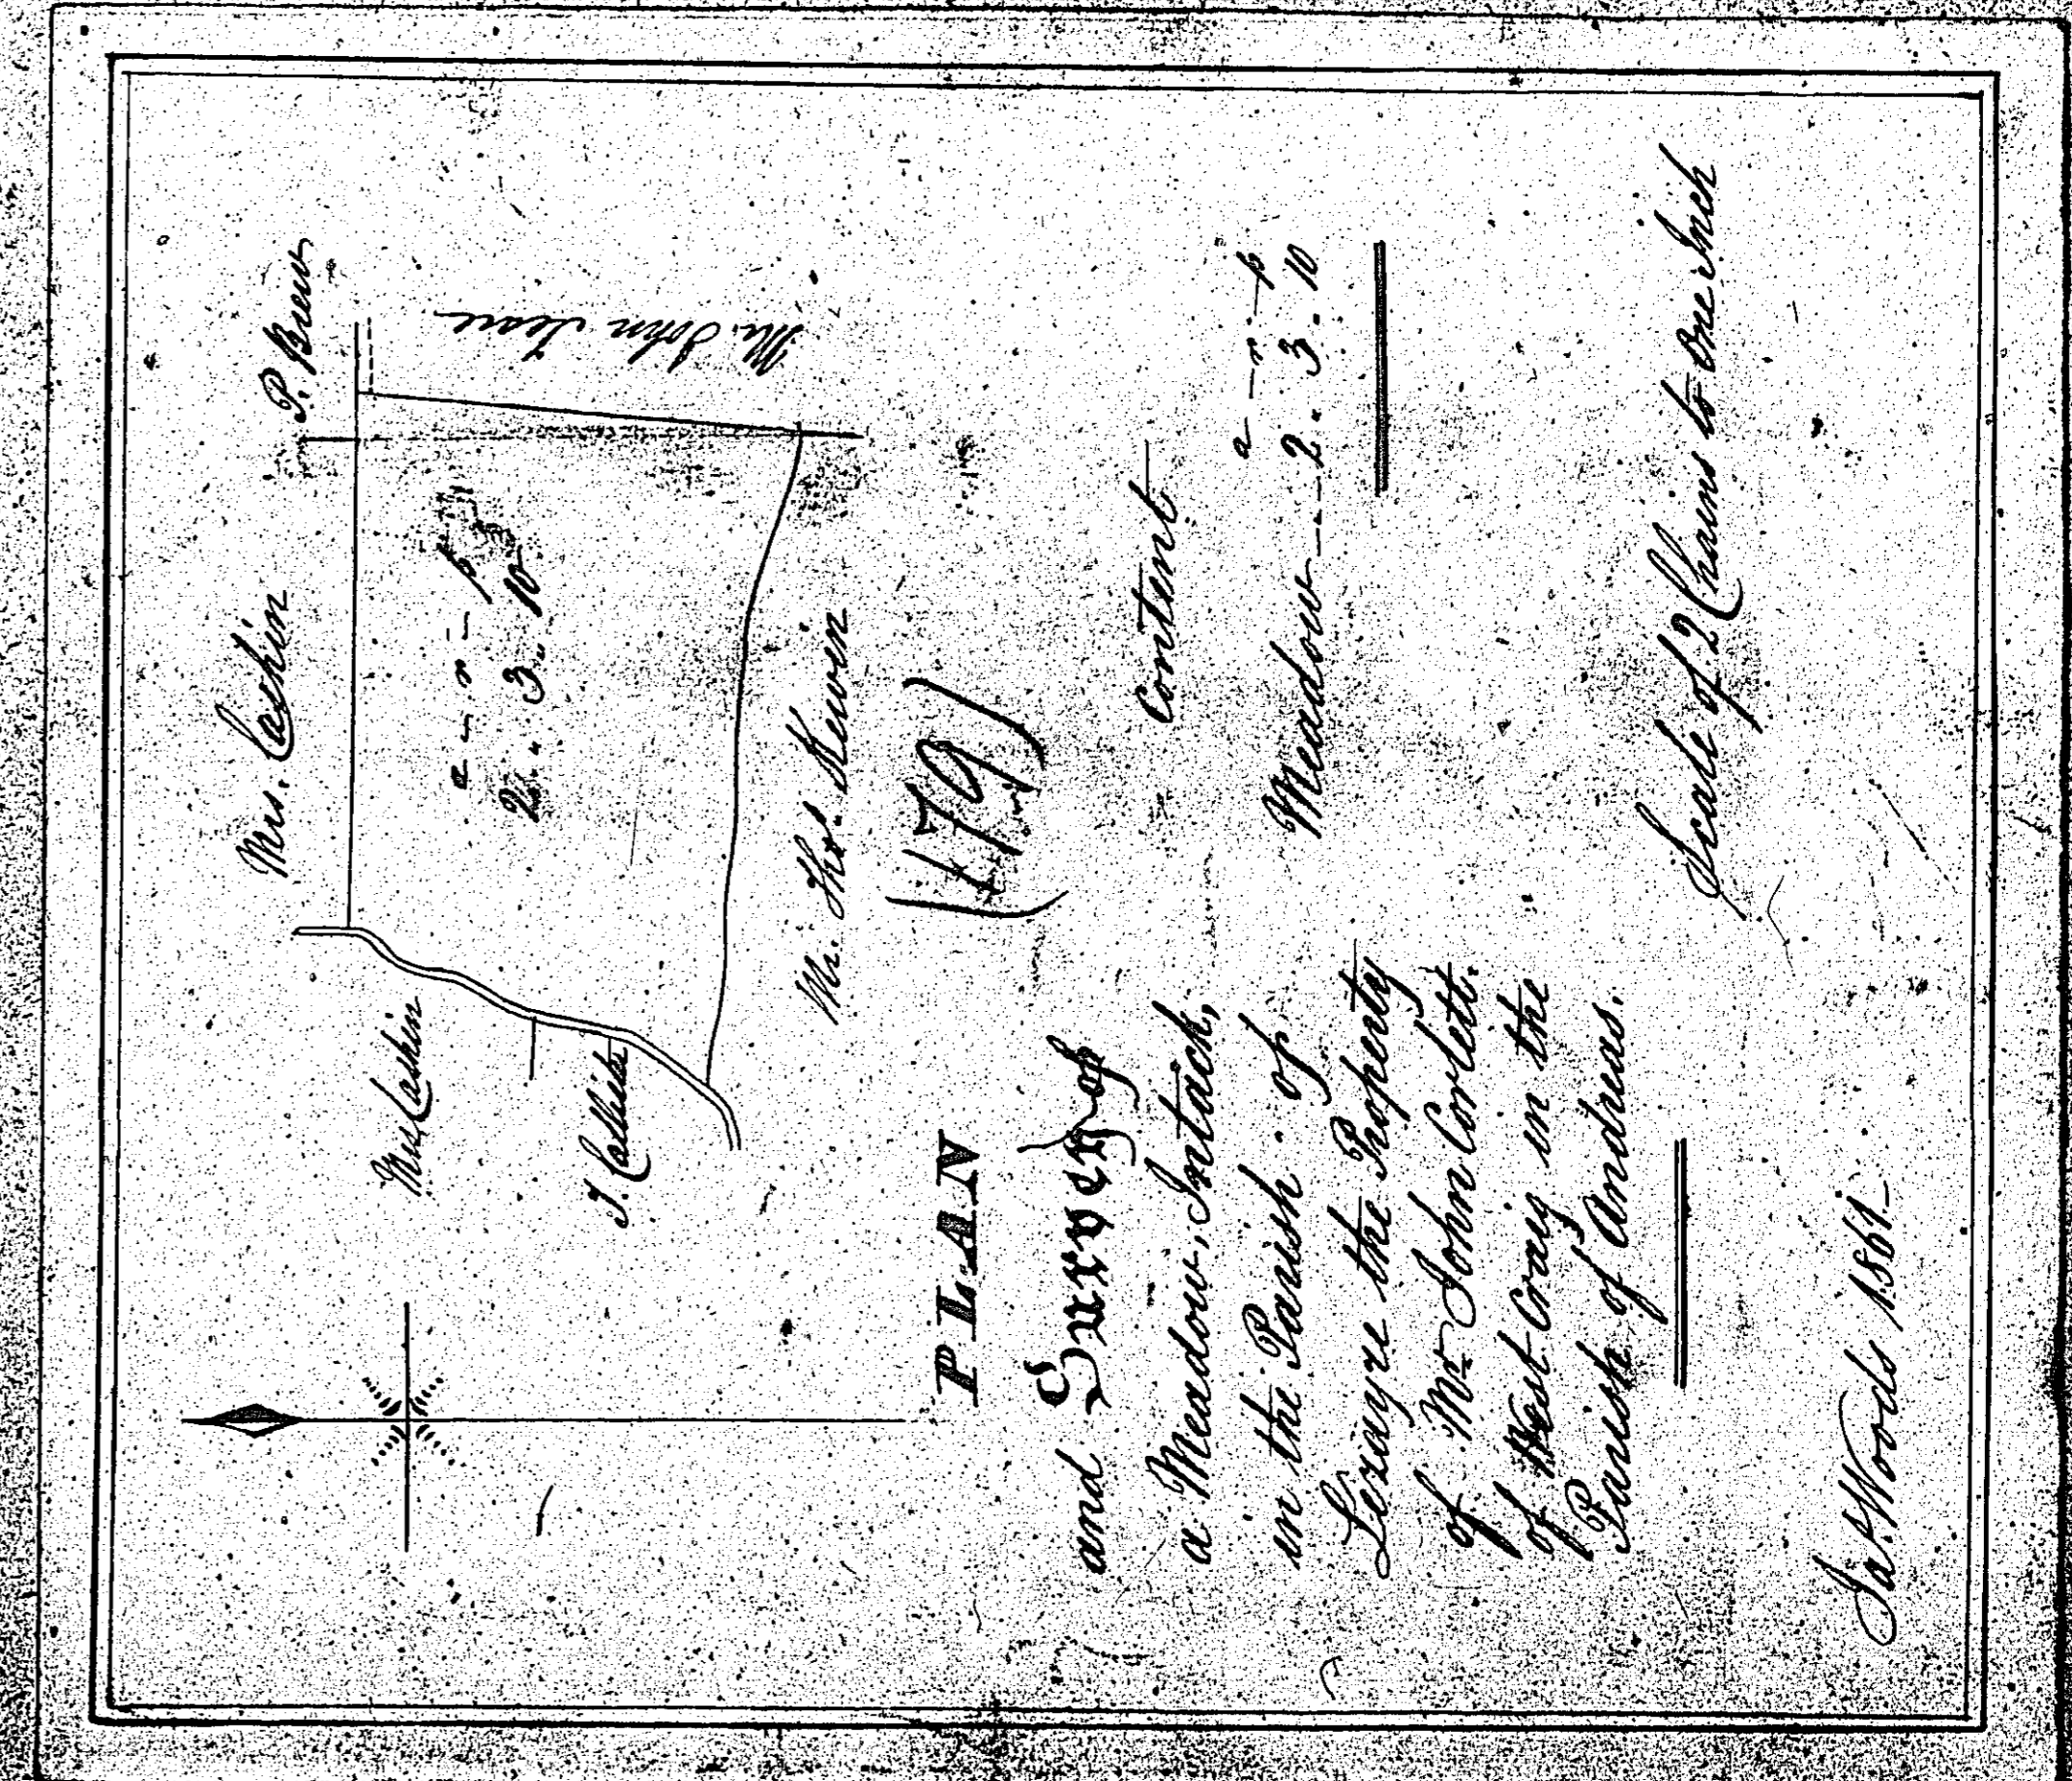 Mrs. Cashin
P. Brew
Mrs Cashin
a - r - p
2 .. 3 .. 10
Mr. John Teare
Mr. Thos. Kewin
(179)
PLAN
and Survey of
a Meadow, Intack,
in the Parish of
Lezayre the Property
of Mr John Corlett.
of West Craig in the
Parish of Andreas.
Content
a - r - p
Meadow --- 2 .. 3 .. 10
Scale of 2 Chains to One Inch
Jas. Woods 1861